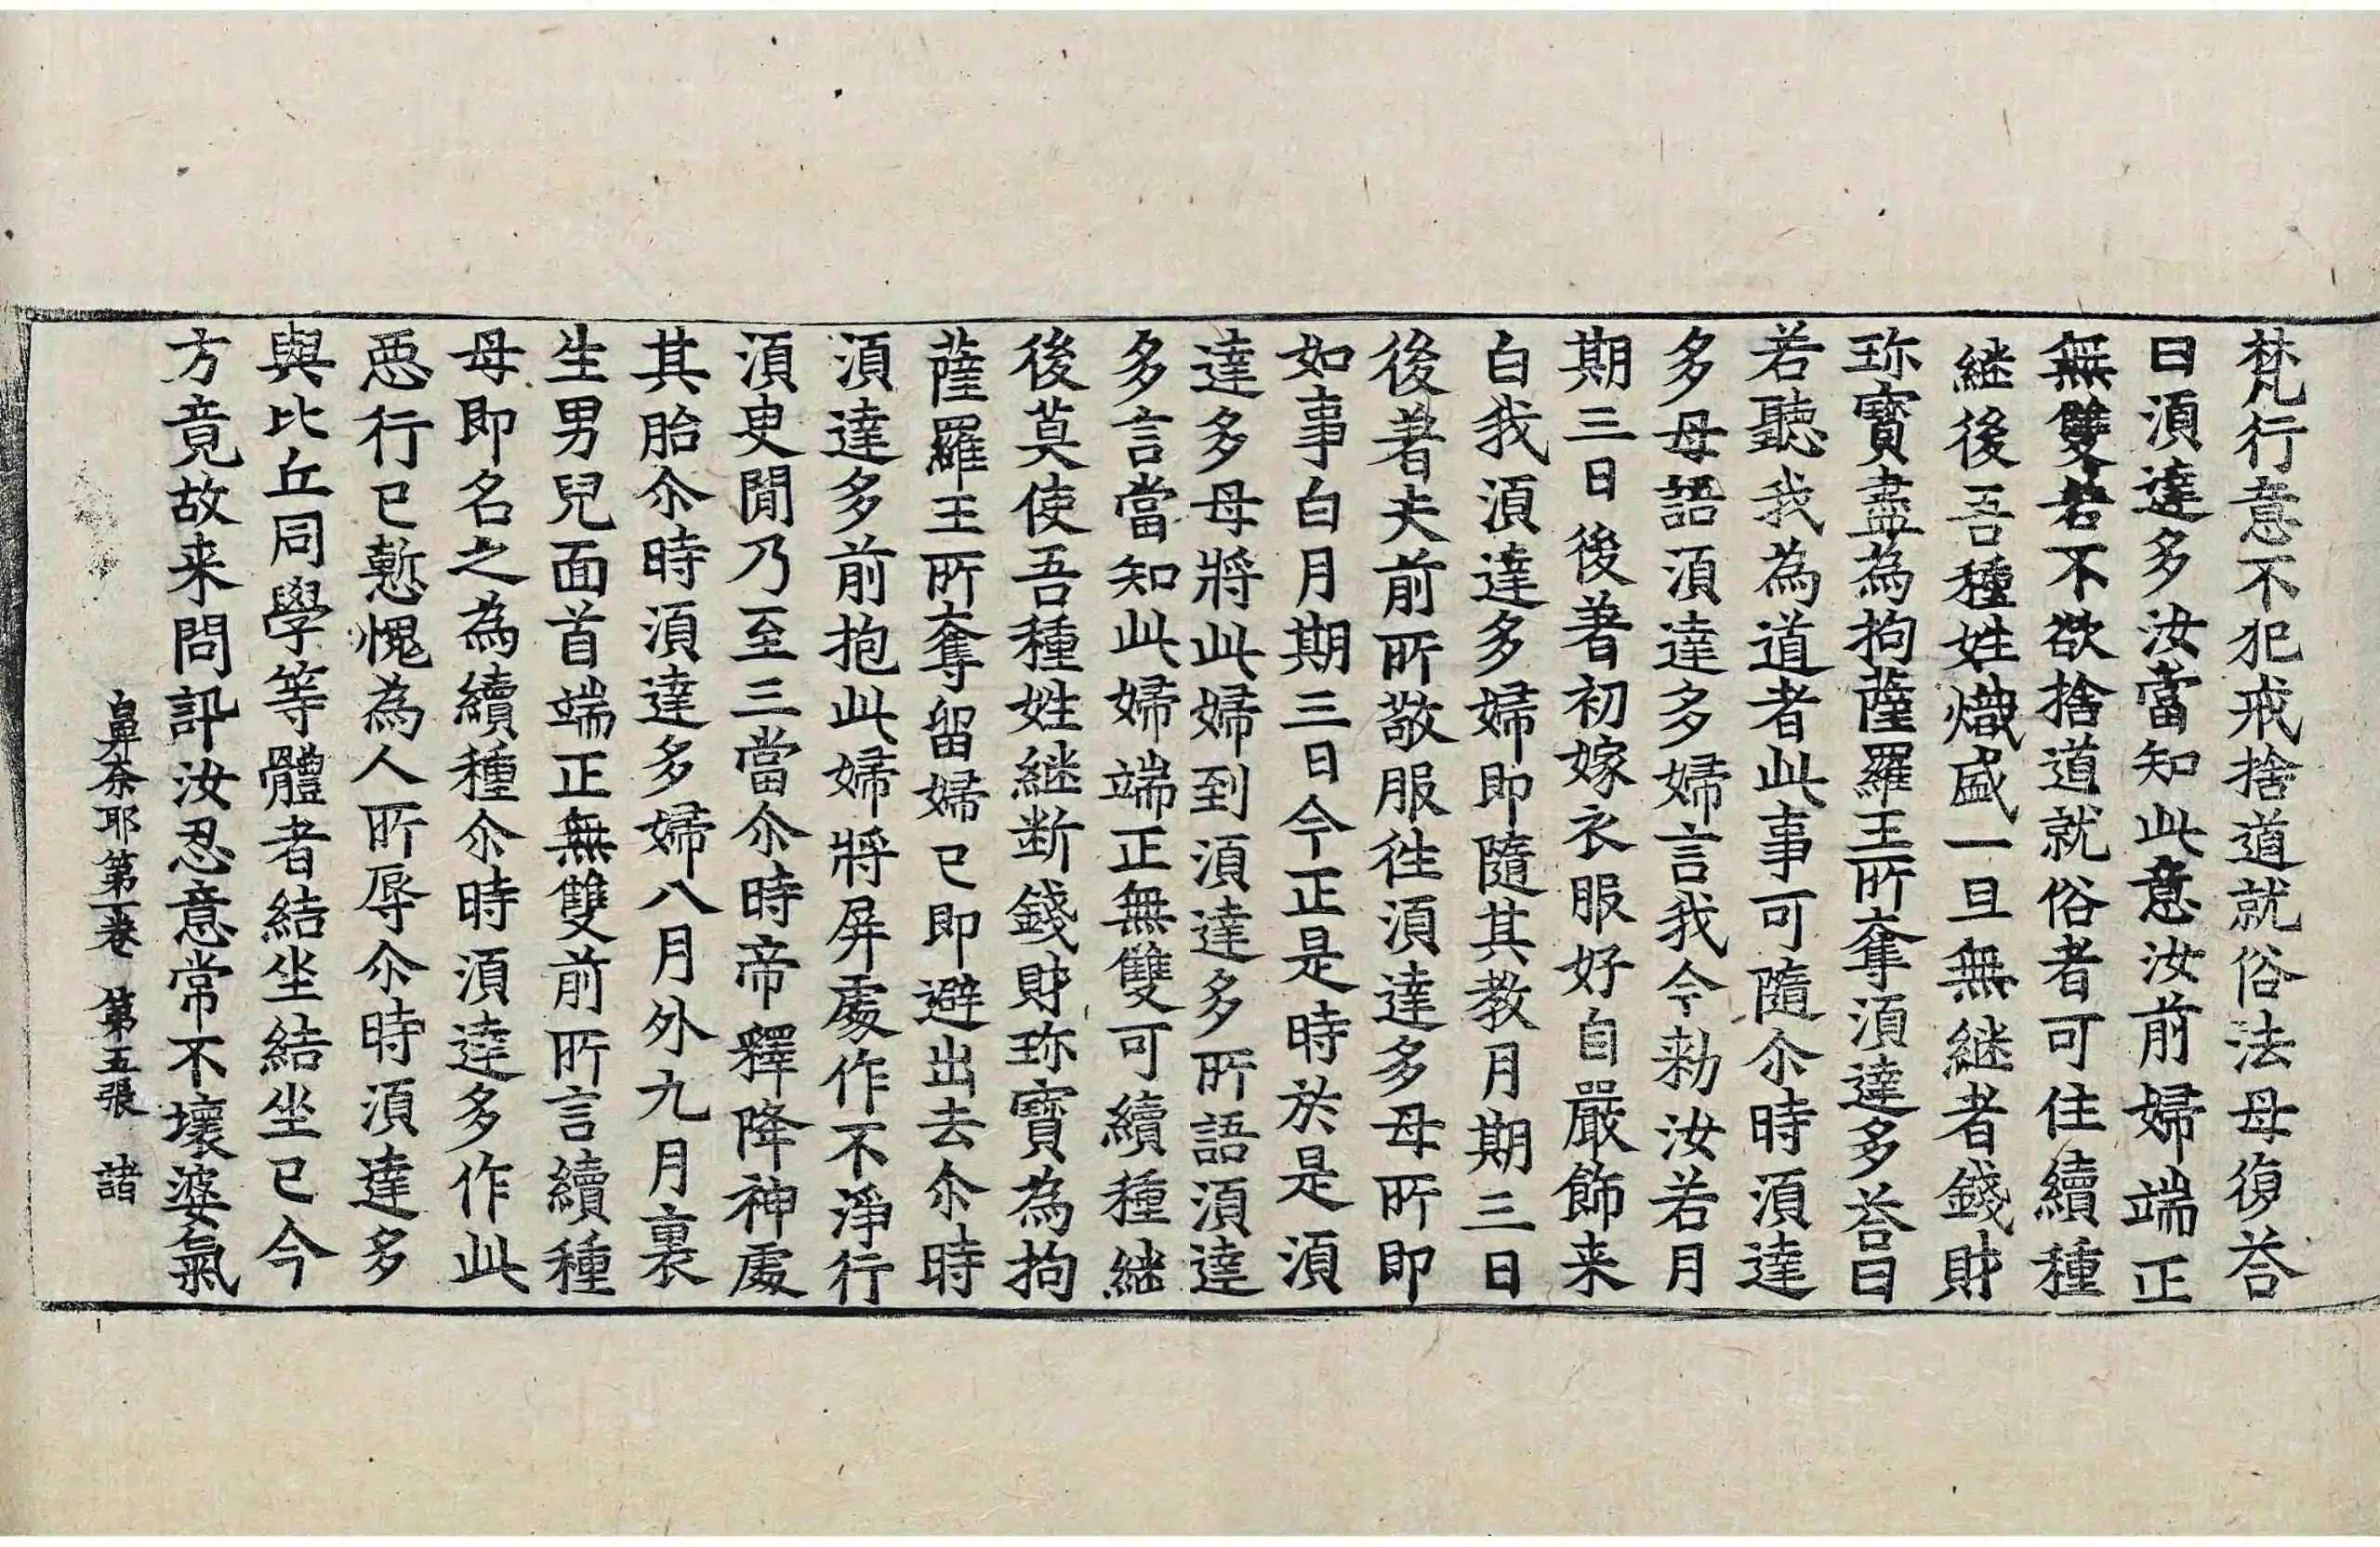 梵行意不犯戒捨道就俗法母復荅
曰湏達多汝當知此意汝前婦端正
無雙若不欲捨道就俗者可住續種
継後吾種姓熾盛一旦無継者錢財
珎寳盡為拘薩羅王所奪湏達多荅曰
若聽我為道者此事可隨尒時湏達
多母語湏達多婦言我今勑汝若月
期三日後著初嫁衣服好自嚴飾来
白我湏達多婦即隨其教月期三日
後著夫前所敬服徃湏達多母所即
如事白月期三日今正是時於是湏
達多母將此婦到湏達多所語湏達
多言當知此婦端正無雙可續種継
後莫使吾種姓継断錢財珎寳為拘
薩羅王所奪留婦已即避出去尒時
湏達多前抱此婦將屏處作不淨行
湏臾閒乃至三當尒時帝釋降神處
其胎尒時湏達多婦八月外九月裏
生男兒面首端正無雙前所言續種
母即名之為續種尒時湏達多作此
惡行已慙愧為人所辱尒時湏達多
與比丘同學等體者結坐結坐已今
方竟故来問訊汝忍意常不壞婆氣
鼻奈耶第一卷　第五張　諸